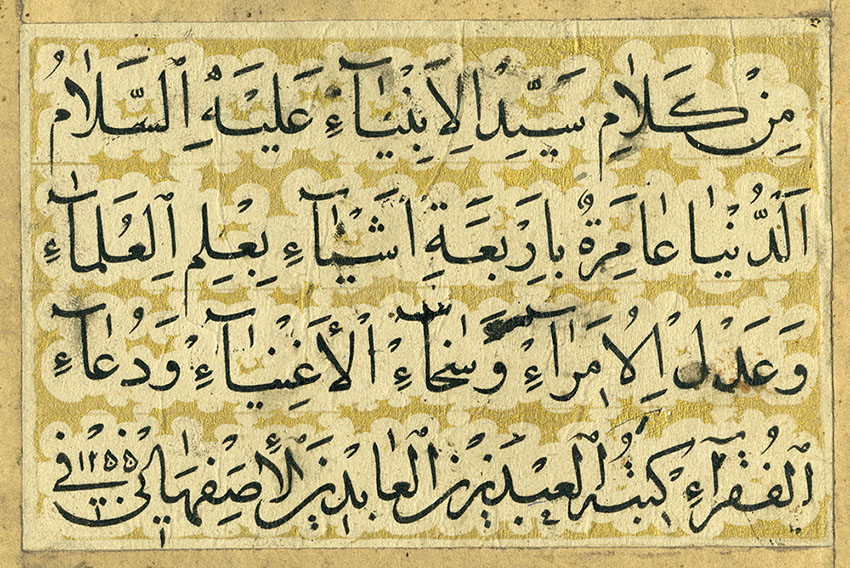 مِنْ كَلَامِ سَيِّدِ الْاَنْبِيَآءِ عَلَيْهِ السَّلَامُ
اَلدُّنْيَا عَامِرَةٌ بِاَرْبَعَةِ اَشْيَآءِ بِعِلْمِ الْعُلَمَآءِ
وَعَدْلِ الْاُمَرَآءِ وَسَخَآءِ الْأَغْنِيَآءِ وَدُعَآءِ
الْفُقَرَآءِ كَتَبَهُ الْعَبْد زين العابدين الأصفهاني في ١٢٥٥